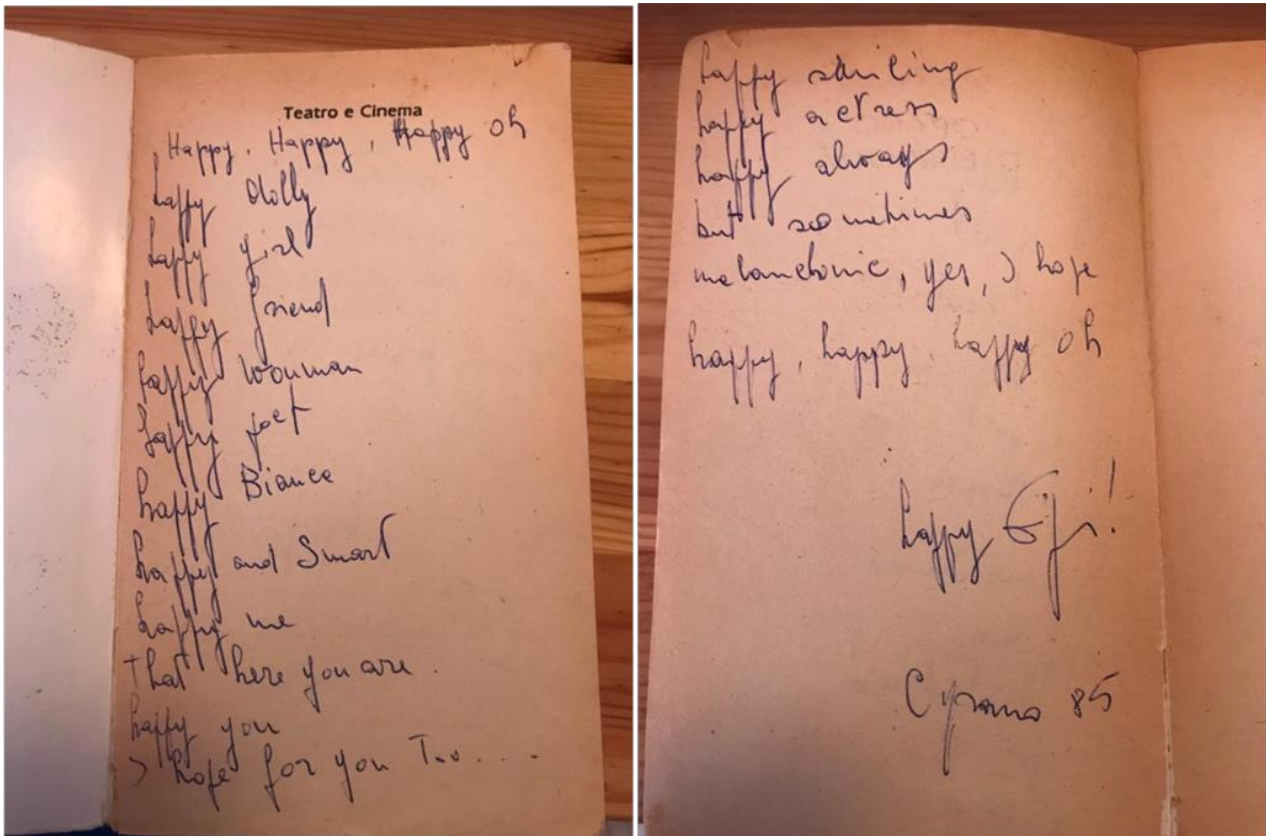 Teatro e Cinema
Happy. Happy, Happy oh
happy dolly
happy girl
happy friend
happy wouman
happy poet
happy Bianca
happy and Smart
happy me
that here you are.
happy you
I hope for you Too....
happy smiling
happy actress
happy always
but sometimes
melanconic, yes, I hope
happy, happy, happy oh
happy
Cyrano 85